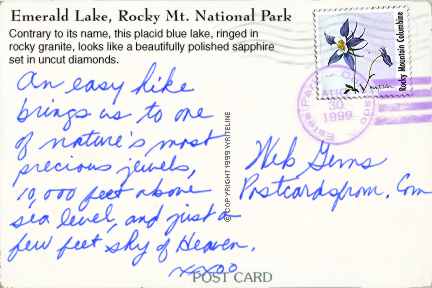 Emerald Lake, Rocky Mt. National Park
Contrary to its name, this placid blue lake, ringed in
rocky granite, looks like a beautifully polished sapphire
set in uncut diamonds.
An easy hike
brings us to one
of nature's most
precious jewels,
10,000 feet above
sea level, and just a
few feet shy of Heaven.
xxoo
POST CARD
© COPYRIGHT 1999 WRITELINE
Rocky Mountain Columbine
30
1999
Web Gems
Postcardsfrom.Com